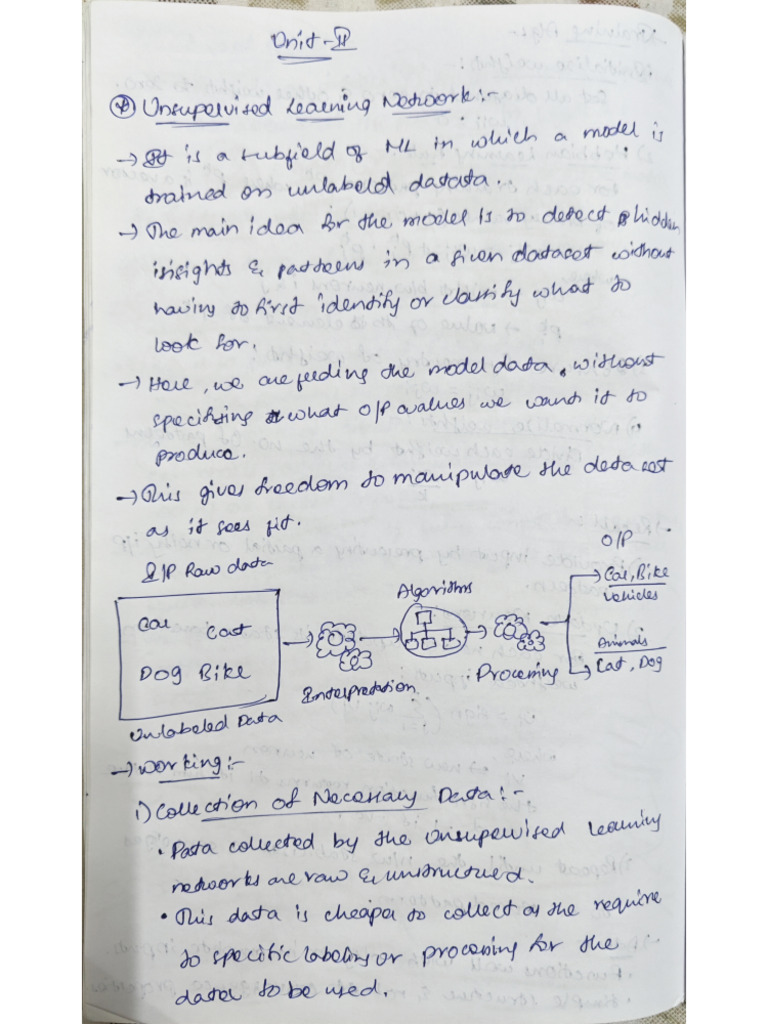 Unit-II
* Unsupervised Learning Network:-
→ It is a subfield of ML in which a model is
trained on unlabeld datata.
→ The main idea for the model is to detect hidden
insights & patterns in a given dataset without
having to first identify or classify what to
look for.
→ Here, we are feeding the model data, without
specifying what O/P values we want it to
produce.
→ This gives freedom to manipulate the dataset
as it sees fit.
I/P Raw data
Car Cat
Dog Bike
Unlabeled Data
Interpretation
Algorithms
Processing
O/P
Car, Bike
Vehicles
Animals
Cat, Dog
→ Working:-
i) Collection of Necessary Data:-
• Data collected by the Unsupervised learning
networks are raw & unstructured.
• This data is cheaper to collect as the require
to specific labeling or processing for the
data to be used.